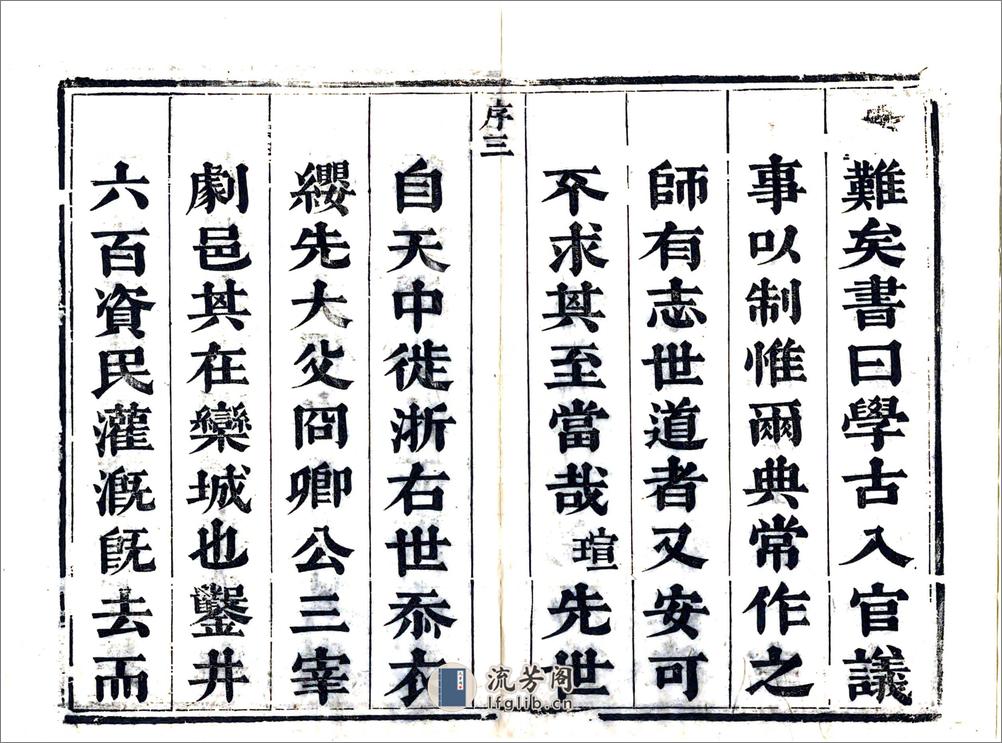 難矣書曰學古入官議
事以制惟爾典常作之
師有志世道者又安可
不求其至當哉瑄先世
序三
自天中徙浙右世忝衣
纓先大父冏卿公三宰
劇邑其在欒城也鑿井
六百資民灌溉旣去而
流芳阁
lfglib.cn